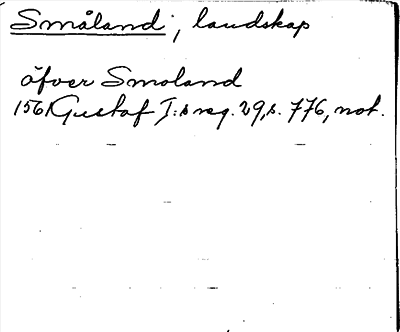 Småland, landskap
öfver Smoland
1561 Gustaf I:s reg. 29, s. 776, not.